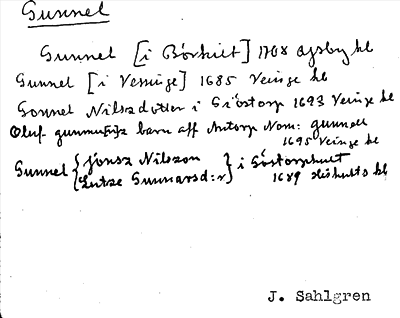 Gunnel
Gunnel [i Börkult] 1708 Ysby kb
Gunnel [i Veinge] 1685 Veinge kb
Gonnel Nilsdotter i Giöstorp 1693 Veinge kb
Oluf barn aff Antorp Nom: gunnell
1695 Veinge kb
Gunnel { Jönsz Nilszon
Lutze Gunnarsd:r } i Göstorphult
1689 kb
J. Sahlgren